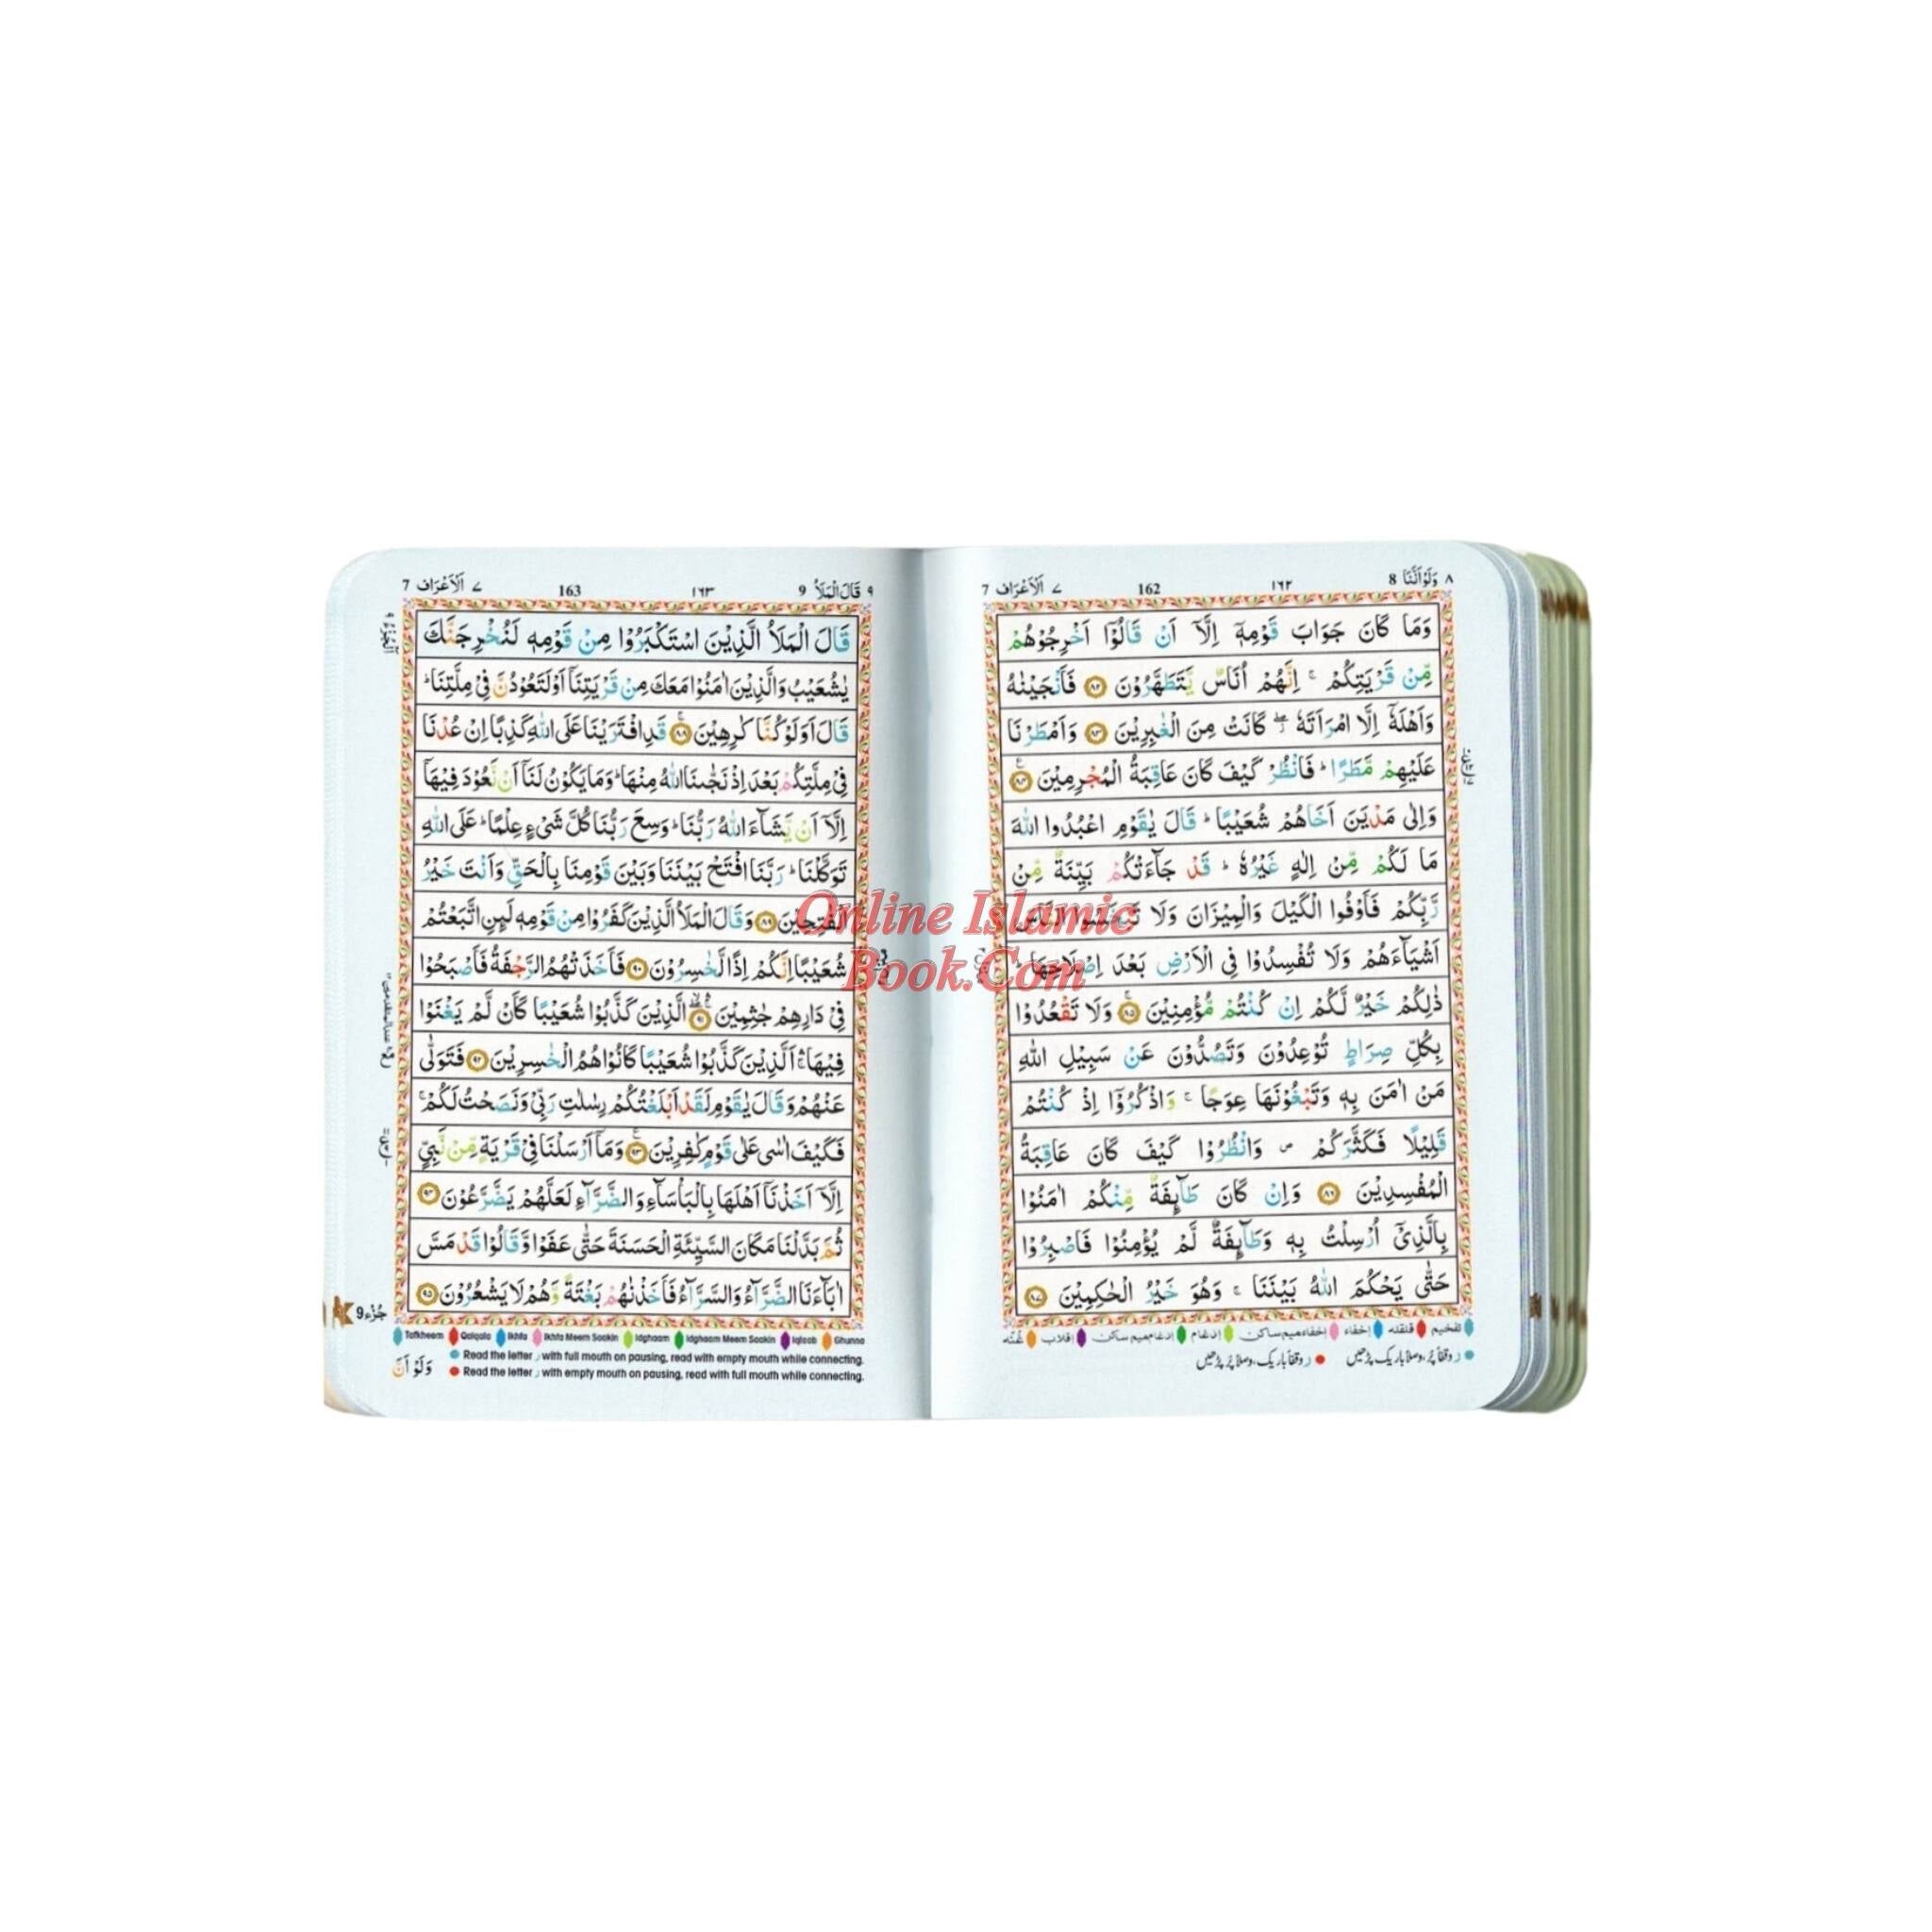 ٨ وَلَوْ اَنَّنَا 8
١٦٢
162
٧ اَلْاَعْرَاف 7
وَمَا كَانَ جَوَابَ قَوْمِهٖۤ اِلَّاۤ اَنْ قَالُوْۤا اَخْرِجُوْهُمْ
مِّنْ قَرْيَتِكُمْ ۚ اِنَّهُمْ اُنَاسٌ يَّتَطَهَّرُوْنَ ٨٢ فَاَنْجَيْنٰهُ
وَاَهْلَهٗۤ اِلَّا امْرَاَتَهٗ ۖ كَانَتْ مِنَ الْغٰبِرِيْنَ ٨٣ وَاَمْطَرْنَا
عَلَيْهِمْ مَّطَرًا ؕ فَانْظُرْ كَيْفَ كَانَ عَاقِبَةُ الْمُجْرِمِيْنَ
وَاِلٰى مَدْيَنَ اَخَاهُمْ شُعَيْبًا ؕ قَالَ يٰقَوْمِ اعْبُدُوا اللّٰهَ
مَا لَكُمْ مِّنْ اِلٰهٍ غَيْرُهٗ ؕ قَدْ جَآءَتْكُمْ بَيِّنَةٌ مِّنْ
رَّبِّكُمْ فَاَوْفُوا الْكَيْلَ وَالْمِيْزَانَ وَلَا تَبْخَسُوا النَّاسَ
اَشْيَآءَهُمْ وَلَا تُفْسِدُوْا فِى الْاَرْضِ بَعْدَ اِصْلَاحِهَا ؕ
ذٰلِكُمْ خَيْرٌ لَّكُمْ اِنْ كُنْتُمْ مُّؤْمِنِيْنَ ٨٥ وَلَا تَقْعُدُوْا
بِكُلِّ صِرَاطٍ تُوْعِدُوْنَ وَتَصُدُّوْنَ عَنْ سَبِيْلِ اللّٰهِ
مَنْ اٰمَنَ بِهٖ وَتَبْغُوْنَهَا عِوَجًا ۚ وَاذْكُرُوْۤا اِذْ كُنْتُمْ
قَلِيْلًا فَكَثَّرَكُمْ ۪ وَانْظُرُوْا كَيْفَ كَانَ عَاقِبَةُ
الْمُفْسِدِيْنَ ٨٦ وَاِنْ كَانَ طَآئِفَةٌ مِّنْكُمْ اٰمَنُوْا
بِالَّذِىْۤ اُرْسِلْتُ بِهٖ وَطَآئِفَةٌ لَّمْ يُؤْمِنُوْا فَاصْبِرُوْا
حَتّٰى يَحْكُمَ اللّٰهُ بَيْنَنَا ۚ وَهُوَ خَيْرُ الْحٰكِمِيْنَ ٨٧
تفخيم قلقله إخفاء إخفاء ميم ساكن إدغام إدغام ميم ساكن إقلاب غُنّه
ر وقفاً پُر، وصلاً باریک پڑھیں ر وقفاً باریک، وصلاً پُر پڑھیں
٩ قَالَ الْمَلَاُ 9
١٦٣
163
٧ اَلْاَعْرَاف 7
قَالَ الْمَلَاُ الَّذِيْنَ اسْتَكْبَرُوْا مِنْ قَوْمِهٖ لَنُخْرِجَنَّكَ
يٰشُعَيْبُ وَالَّذِيْنَ اٰمَنُوْا مَعَكَ مِنْ قَرْيَتِنَاۤ اَوْ لَتَعُوْدُنَّ فِىْ مِلَّتِنَا ؕ
قَالَ اَوَلَوْ كُنَّا كٰرِهِيْنَ ٨٨ قَدِ افْتَرَيْنَا عَلَى اللّٰهِ كَذِبًا اِنْ عُدْنَا
فِىْ مِلَّتِكُمْ بَعْدَ اِذْ نَجّٰىنَا اللّٰهُ مِنْهَا ؕ وَمَا يَكُوْنُ لَنَاۤ اَنْ نَّعُوْدَ فِيْهَاۤ
اِلَّاۤ اَنْ يَّشَآءَ اللّٰهُ رَبُّنَا ؕ وَسِعَ رَبُّنَا كُلَّ شَىْءٍ عِلْمًا ؕ عَلَى اللّٰهِ
تَوَكَّلْنَا ؕ رَبَّنَا افْتَحْ بَيْنَنَا وَبَيْنَ قَوْمِنَا بِالْحَقِّ وَاَنْتَ خَيْرُ
الْفٰتِحِيْنَ ٨٩ وَقَالَ الْمَلَاُ الَّذِيْنَ كَفَرُوْا مِنْ قَوْمِهٖ لَئِنِ اتَّبَعْتُمْ
شُعَيْبًا اِنَّكُمْ اِذًا لَّخٰسِرُوْنَ ٩٠ فَاَخَذَتْهُمُ الرَّجْفَةُ فَاَصْبَحُوْا
فِىْ دَارِهِمْ جٰثِمِيْنَ ٩١ الَّذِيْنَ كَذَّبُوْا شُعَيْبًا كَاَنْ لَّمْ يَغْنَوْا
فِيْهَا ۛۚ اَلَّذِيْنَ كَذَّبُوْا شُعَيْبًا كَانُوْا هُمُ الْخٰسِرِيْنَ ٩٢ فَتَوَلّٰى
عَنْهُمْ وَقَالَ يٰقَوْمِ لَقَدْ اَبْلَغْتُكُمْ رِسٰلٰتِ رَبِّىْ وَنَصَحْتُ لَكُمْ ۚ
فَكَيْفَ اٰسٰى عَلٰى قَوْمٍ كٰفِرِيْنَ ٩٣ وَمَاۤ اَرْسَلْنَا فِىْ قَرْيَةٍ مِّنْ نَّبِىٍّ
اِلَّاۤ اَخَذْنَاۤ اَهْلَهَا بِالْبَاْسَآءِ وَالضَّرَّآءِ لَعَلَّهُمْ يَضَّرَّعُوْنَ ٩٤
ثُمَّ بَدَّلْنَا مَكَانَ السَّيِّئَةِ الْحَسَنَةَ حَتّٰى عَفَوْا وَّقَالُوْا قَدْ مَسَّ
اٰبَآءَنَا الضَّرَّآءُ وَالسَّرَّآءُ فَاَخَذْنٰهُمْ بَغْتَةً وَّهُمْ لَا يَشْعُرُوْنَ ٩٥
جُزْء 9
Tafkheem Qalqala Ikhfa Ikhfa Meem Saakin Idghaam Idghaam Meem Saakin Iqlaab Ghunna
Read the letter ر with full mouth on pausing, read with empty mouth while connecting.
Read the letter ر with empty mouth on pausing, read with full mouth while connecting.
وَلَوْ اَنَّ
Online Islamic
Book.Com